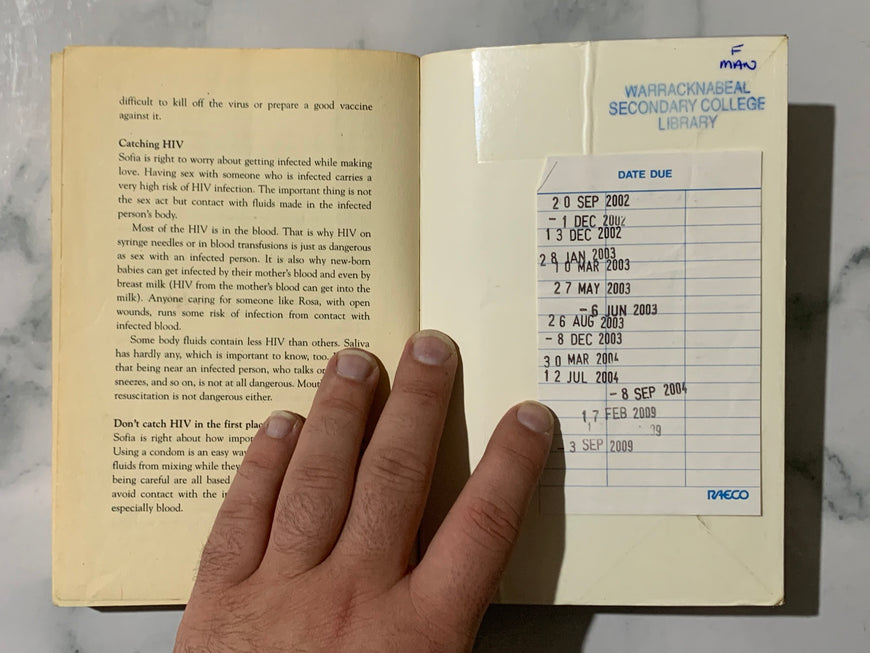 difficult to kill off the virus or prepare a good vaccine
against it.
Catching HIV
Sofia is right to worry about getting infected while making
love. Having sex with someone who is infected carries a
very high risk of HIV infection. The important thing is not
the sex act but contact with fluids made in the infected
person's body.
Most of the HIV is in the blood. That is why HIV on
syringe needles or in blood transfusions is just as dangerous
as sex with an infected person. It is also why new-born
babies can get infected by their mother's blood and even by
breast milk (HIV from the mother's blood can get into the
milk). Anyone caring for someone like Rosa, with open
wounds, runs some risk of infection from contact with
infected blood.
Some body fluids contain less HIV than others. Saliva
has hardly any, which is important to know, too.
that being near an infected person, who talks or
sneezes, and so on, is not at all dangerous.
resuscitation is not dangerous either.
Don't catch HIV in the first
Sofia is right about how
Using a condom is an easy
fluids from mixing while they
being careful are all based
avoid contact with the
especially blood.
F
MAN
WARRACKNABEAL
SECONDARY COLLEGE
LIBRARY
DATE DUE
20 SEP 2002
-1 DEC 2002
13 DEC 2002
28 JAN 2003
10 MAR 2003
27 MAY 2003
-6 JUN 2003
26 AUG 2003
-8 DEC 2003
30 MAR 2004
12 JUL 2004
-8 SEP 2004
17 FEB 2009
-3 SEP 2009
RAECO